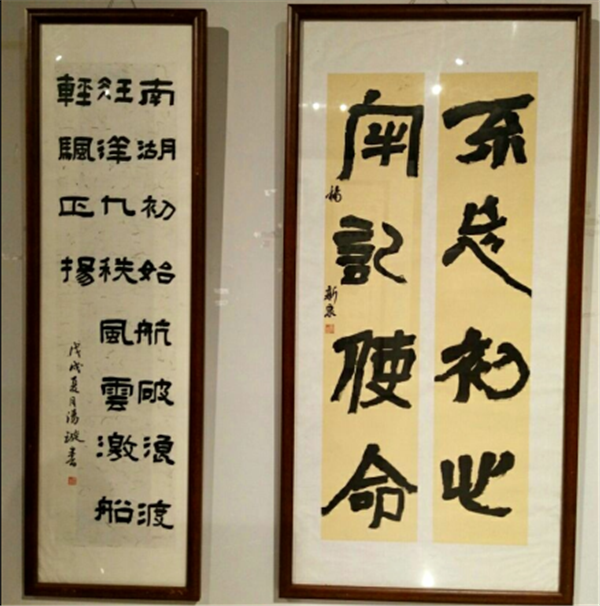 不忘初心
牢記使命
楊新泉
南湖初始航破浪渡
狂洋九秩風雲激船
輕颿正揚
戊戌夏月湯書